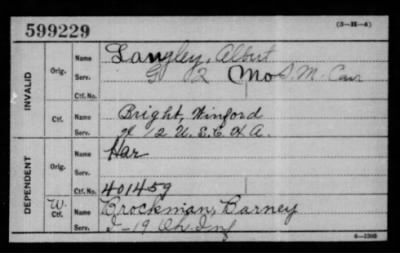 599229
(3—H—4)
INVALID
Orig. Name Langley, Albert
Serv. G 12 Mo S. M. Cav
Ctf. No.
Ctf. Name Bright, Winford
Serv. 12 U.S.C. H A.
DEPENDENT
Orig. Name Har
Serv.
Ctf. No. 401459
W. Ctf. Name Brockman, Barney
Serv. I-19 Oh. Inf